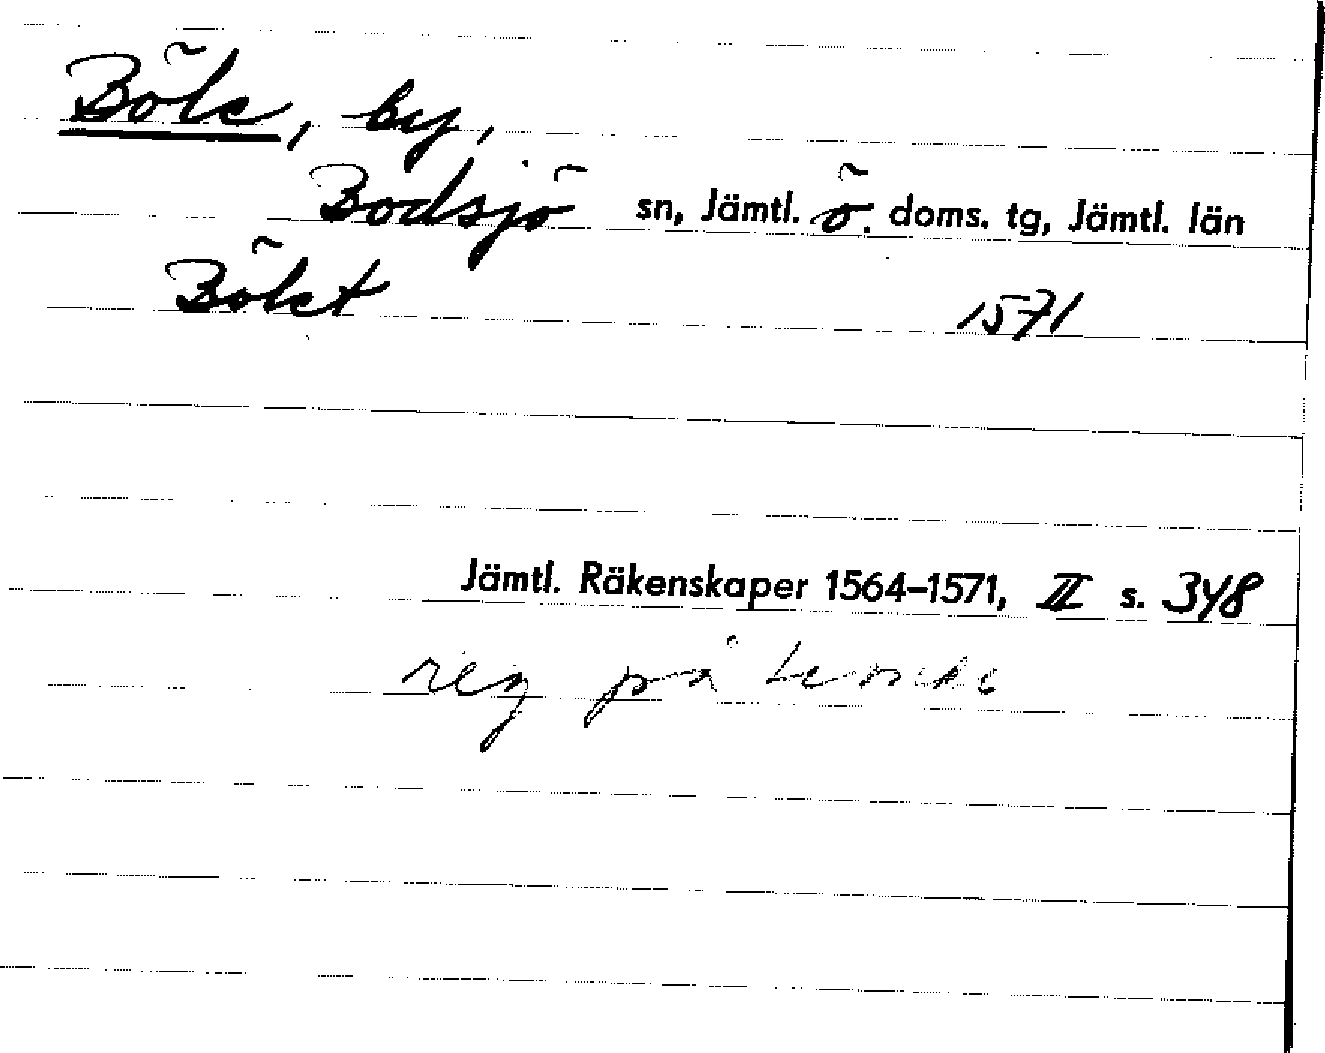 Böle, by,
Bodsjö sn, Jämtl. ö. doms. tg, Jämtl. län
Bölet 1571
Jämtl. Räkenskaper 1564–1571, II s. 348
reg på